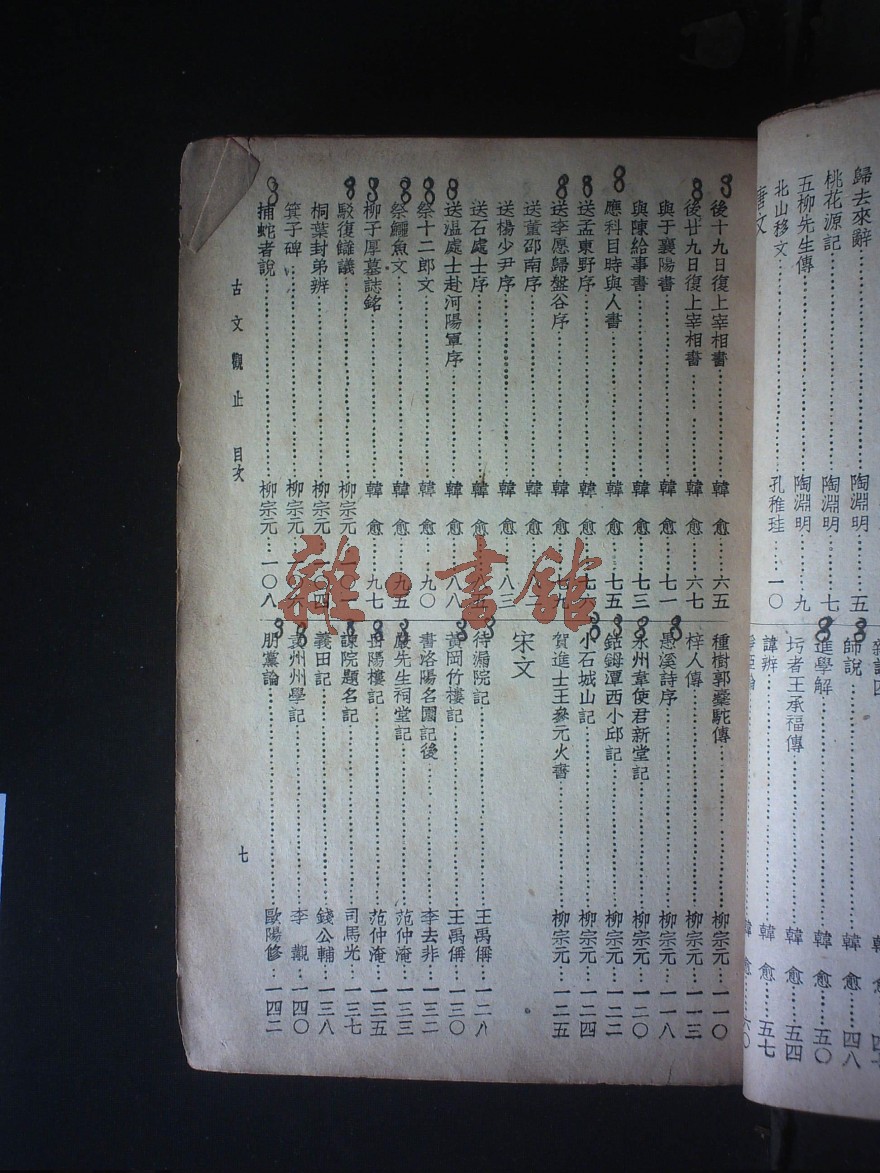 歸去來辭……陶淵明…五
桃花源記……陶淵明…七
五柳先生傳……陶淵明…九
北山移文……孔稚珪…一〇
唐文
師說……韓 愈…四八
進學解……韓 愈…五〇
圬者王承福傳……韓 愈…五四
諱辨……韓 愈…五七
後十九日復上宰相書……韓 愈…六五
後廿九日復上宰相書……韓 愈…六七
與于襄陽書……韓 愈…七一
與陳給事書……韓 愈…七三
應科目時與人書……韓 愈…七五
送孟東野序……韓 愈…七六
送李愿歸盤谷序……韓 愈…七九
送董邵南序……韓 愈…
送楊少尹序……韓 愈…八三
送石處士序……韓 愈…八五
送溫處士赴河陽軍序……韓 愈…八八
祭十二郎文……韓 愈…九〇
祭鱷魚文……韓 愈…九五
柳子厚墓誌銘……韓 愈…九七
駁復讎議……柳宗元…一〇一
桐葉封弟辨……柳宗元…一〇四
箕子碑……柳宗元…一〇六
捕蛇者說……柳宗元…一〇八
種樹郭橐駝傳……柳宗元…一一〇
梓人傳……柳宗元…一一三
愚溪詩序……柳宗元…一一八
永州韋使君新堂記……柳宗元…一二〇
鈷鉧潭西小邱記……柳宗元…一二二
小石城山記……柳宗元…一二四
賀進士王參元火書……柳宗元…一二五
宋文
待漏院記……王禹偁…一二八
黃岡竹樓記……王禹偁…一三〇
書洛陽名園記後……李去非…一三二
嚴先生祠堂記……范仲淹…一三三
岳陽樓記……范仲淹…一三五
諫院題名記……司馬光…一三七
義田記……錢公輔…一三八
袁州州學記……李 覯…一四〇
朋黨論……歐陽修…一四二
古文觀止 目次
七
雜·書館